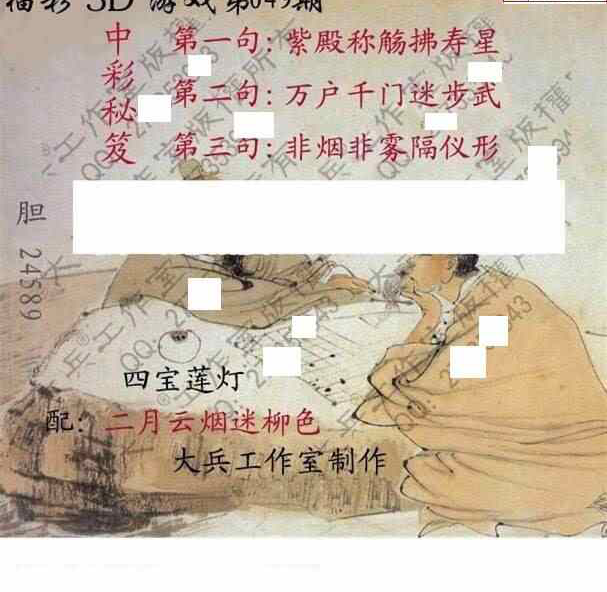 福彩3D游戏第049期
中彩秘笈
第一句:紫殿称觞拂寿星
第二句:万户千门迷步武
第三句:非烟非雾隔仪形
胆 24589
四宝莲灯
配:二月云烟迷柳色
大兵工作室制作